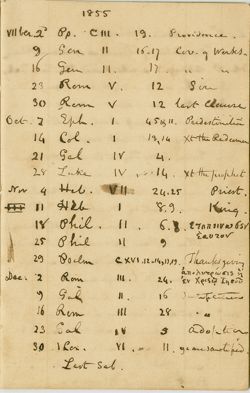 1855
VIIber. 2d Ps. CIII. 19. Providence.
9 Gen II 16-17 Cov. of Works.
16 Gen II. 17 " "
23 Rom V. 12 Sin
30 Rom V 12 last Clause
Oct. 7 Eph. I 4 5 & 11. Predestination
14 Col. I 13,14 Xt the Redeemer
21 Gal IV 4.
28 Luke IV 14. Xt the prophet
Nov 4 Heb. VII 24.25 Priest.
11 Heb I 8.9. King
18 Phil. II 6.8 εταπεινωσεν
εαυτον
25 Phil II 9
29 Psalm CXVI.12.14,17,19. Thanksgiving
Dec. 2 Rom III 24. απολυτρωσις η
εν Χριστῳ Ιησου
9 Gal II. 16
16 Rom III 28 " "
23 Gal IV 5 Adoption
30 1 Cor. VI. 11 ye are sanctified
Last Sab.